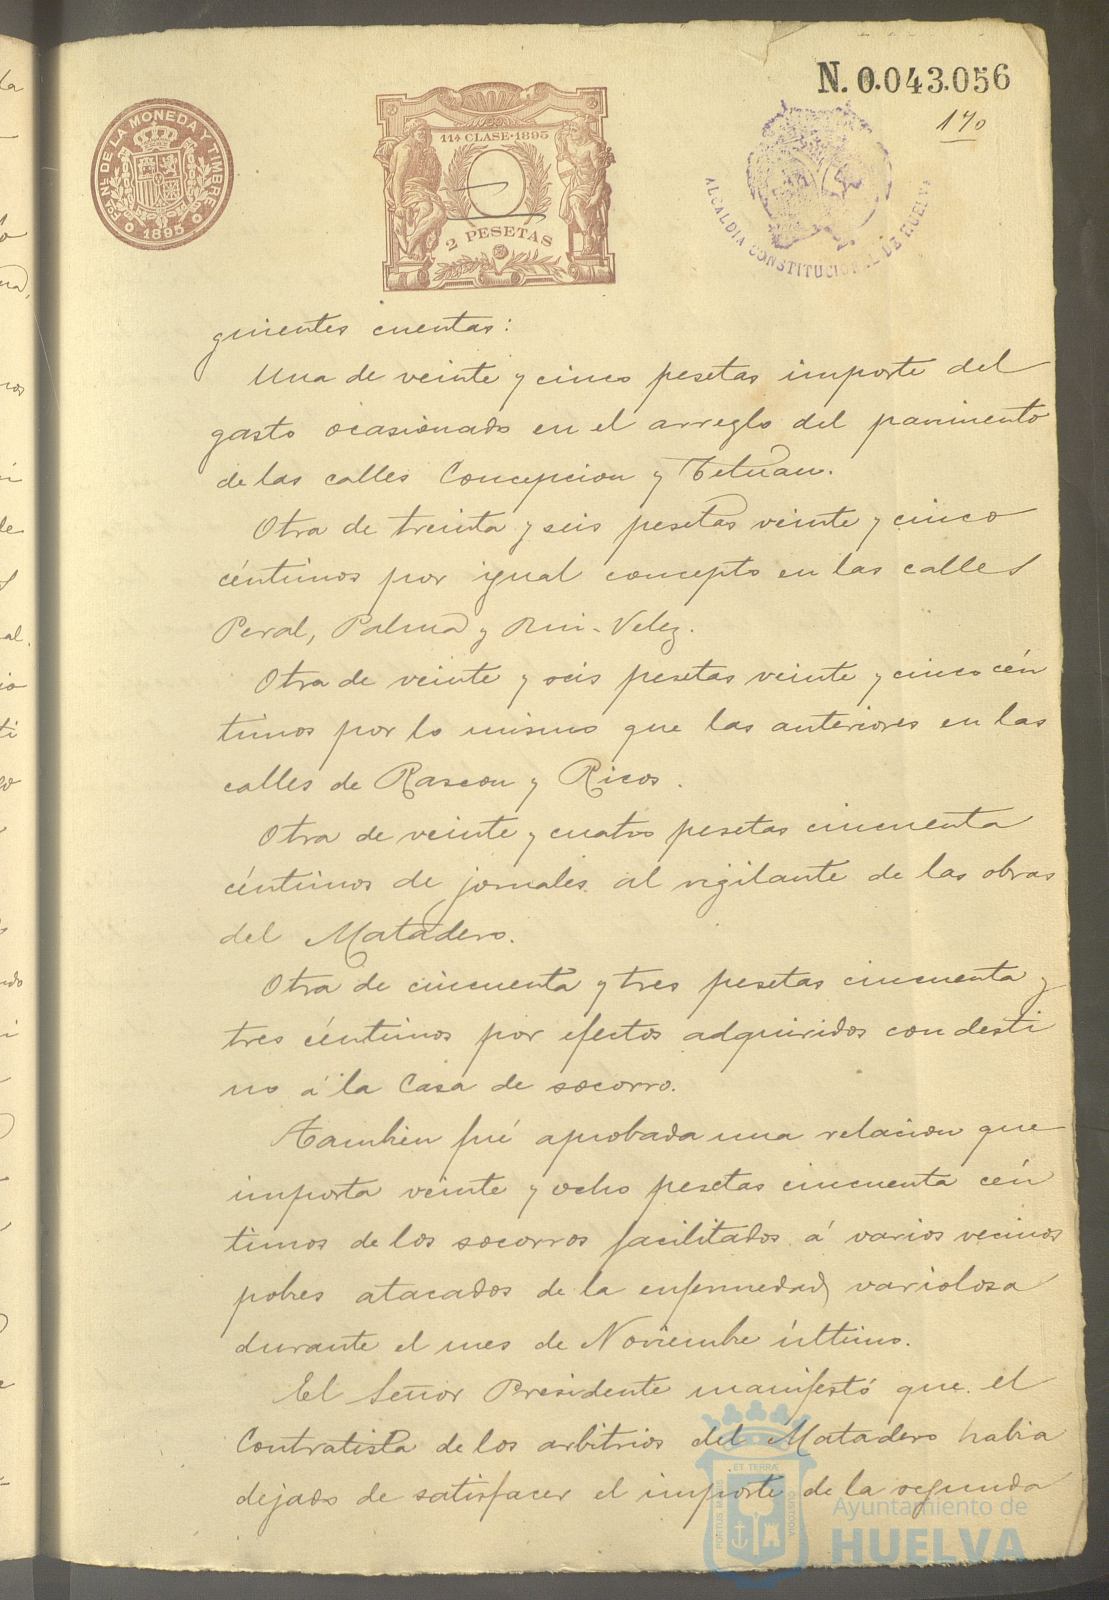 N. 0.043.056
170
FCA. NL. DE LA MONEDA Y TIMBRE
1895
11ª CLASE·1895
2 PESETAS
ALCALDIA CONSTITUCIONAL DE HUELVA
guientes cuentas:
Una de veinte y cinco pesetas importe del
gasto ocasionado en el arreglo del pavimento
de las calles Concepcion y Tetuan.
Otra de treinta y seis pesetas veinte y cinco
céntimos por igual concepto en las calles
Peral, Palma y Rui-Velez.
Otra de veinte y seis pesetas veinte y cinco cén
timos por lo mismo que las anteriores en las
calles de Rascon y Ricos.
Otra de veinte y cuatro pesetas cincuenta
céntimos de jornales al vigilante de las obras
del Matadero.
Otra de cincuenta y tres pesetas cincuenta y
tres céntimos por efectos adquiridos con desti
no á la Casa de socorro.
Tambien fué aprobada una relacion que
importa veinte y ocho pesetas cincuenta cén
timos de los socorros facilitados á varios vecinos
pobres atacados de la enfermedad variolosa
durante el mes de Noviembre último.
El Señor Presidente manifestó que el
Contratista de los arbitrios del Matadero habia
dejado de satisfacer el importe de la segunda
PORTUS MARIS ET TERRÆ CUSTODIA
Ayuntamiento de
HUELVA